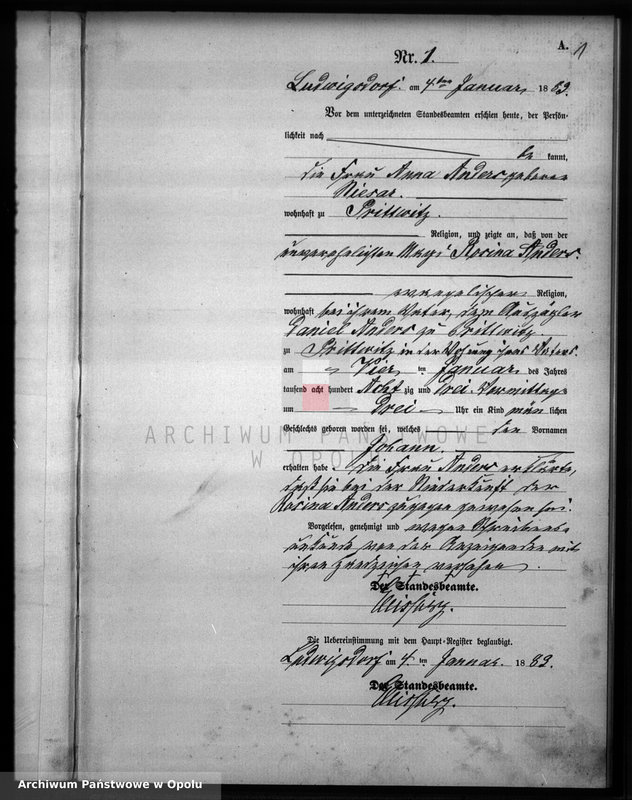 A. 1
Nr. 1.
Ludwigsdorf am 4ten Januar 1883.
Vor dem unterzeichneten Standesbeamten erschien heute, der Persön-
lichkeit nach
be kannt,
die Frau Anna Anders geborene
wohnhaft zu Prittwitz.
Religion, und zeigte an, daß von der
unverehelichten Rosina Anders.
evangelischer Religion,
wohnhaft bei ihrem Vater, dem Auszügler
Daniel Anders zu Prittwitz.
zu Prittwitz in der Wohnung ihres Vaters
am Vier ten Januar des Jahres
tausend acht hundert Acht zig und Drei Vormittags
um Drei Uhr ein Kind männ lichen
Geschlechts geboren worden sei, welches den Vornamen
Johann
erhalten habe. Die Frau Anders erklärte,
daß sie bei der Niederkunft der
Rosina Anders zugegen gewesen sei.
Vorgelesen, genehmigt und wegen Schreibens-
unkunde von der Anzeigenden mit
ihrem Handzeichen versehen.
Der Standesbeamte.
Die Uebereinstimmung mit dem Haupt-Register beglaubigt.
Ludwigsdorf am 4. ten Januar 1883.
Der Standesbeamte.
ARCHIWUM PAŃSTWOWE
W OPOLU
Archiwum Państwowe w Opolu